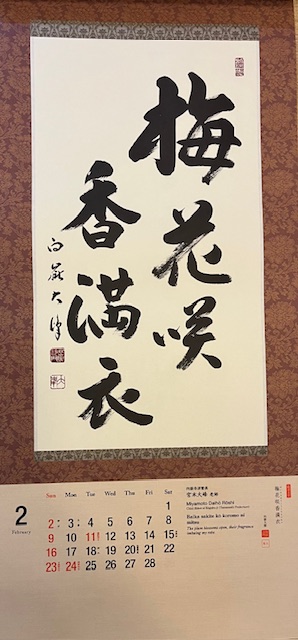 梅花咲
香満衣
2
February
Sun Mon Tue Wed Thu Fri Sat
1
2 3 4 5 6 7 8
9 10 11 12 13 14 15
16 17 18 19 20 21 22
23 24 25 26 27 28
宮本大峰 老師
Miyamoto Daihō Rōshi
Baika sakite kō koromo ni mitsu
The plum blossoms open, their fragrance
suffusing my robe
梅花咲香満衣